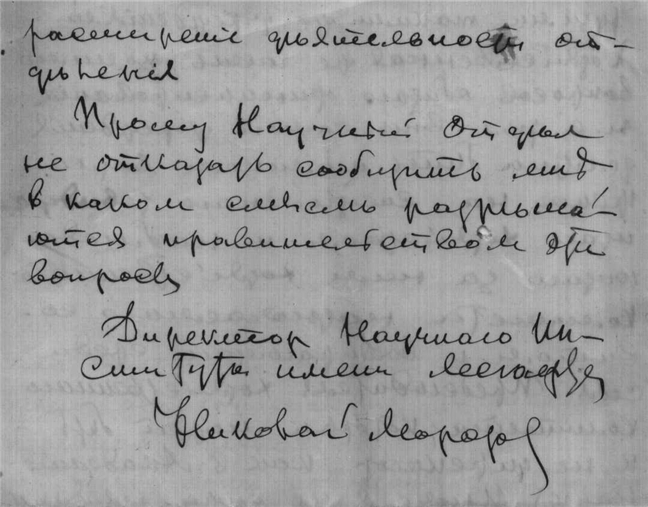 расширенiе дѣятельности от-
дѣленiя
Прошу Научный Отдѣл
не отказать сообщить мнѣ
в каком смыслѣ разрѣша-
ются правительством эти
вопросы
Директор Научнаго Ин-
ститута имени Лесгафта
Николай Морозов